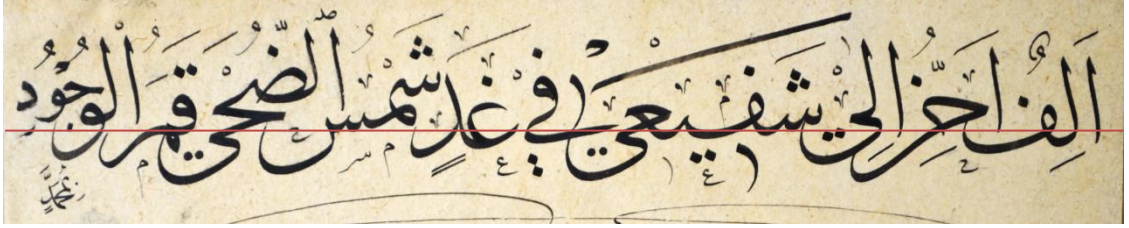 اَلِفُ اَحِنُّ اِلى شَفيعي في غَدٍ شَمْسُ الضُّحى قَمَرُ الْوُجُودِ
مُحَمَّدٍ